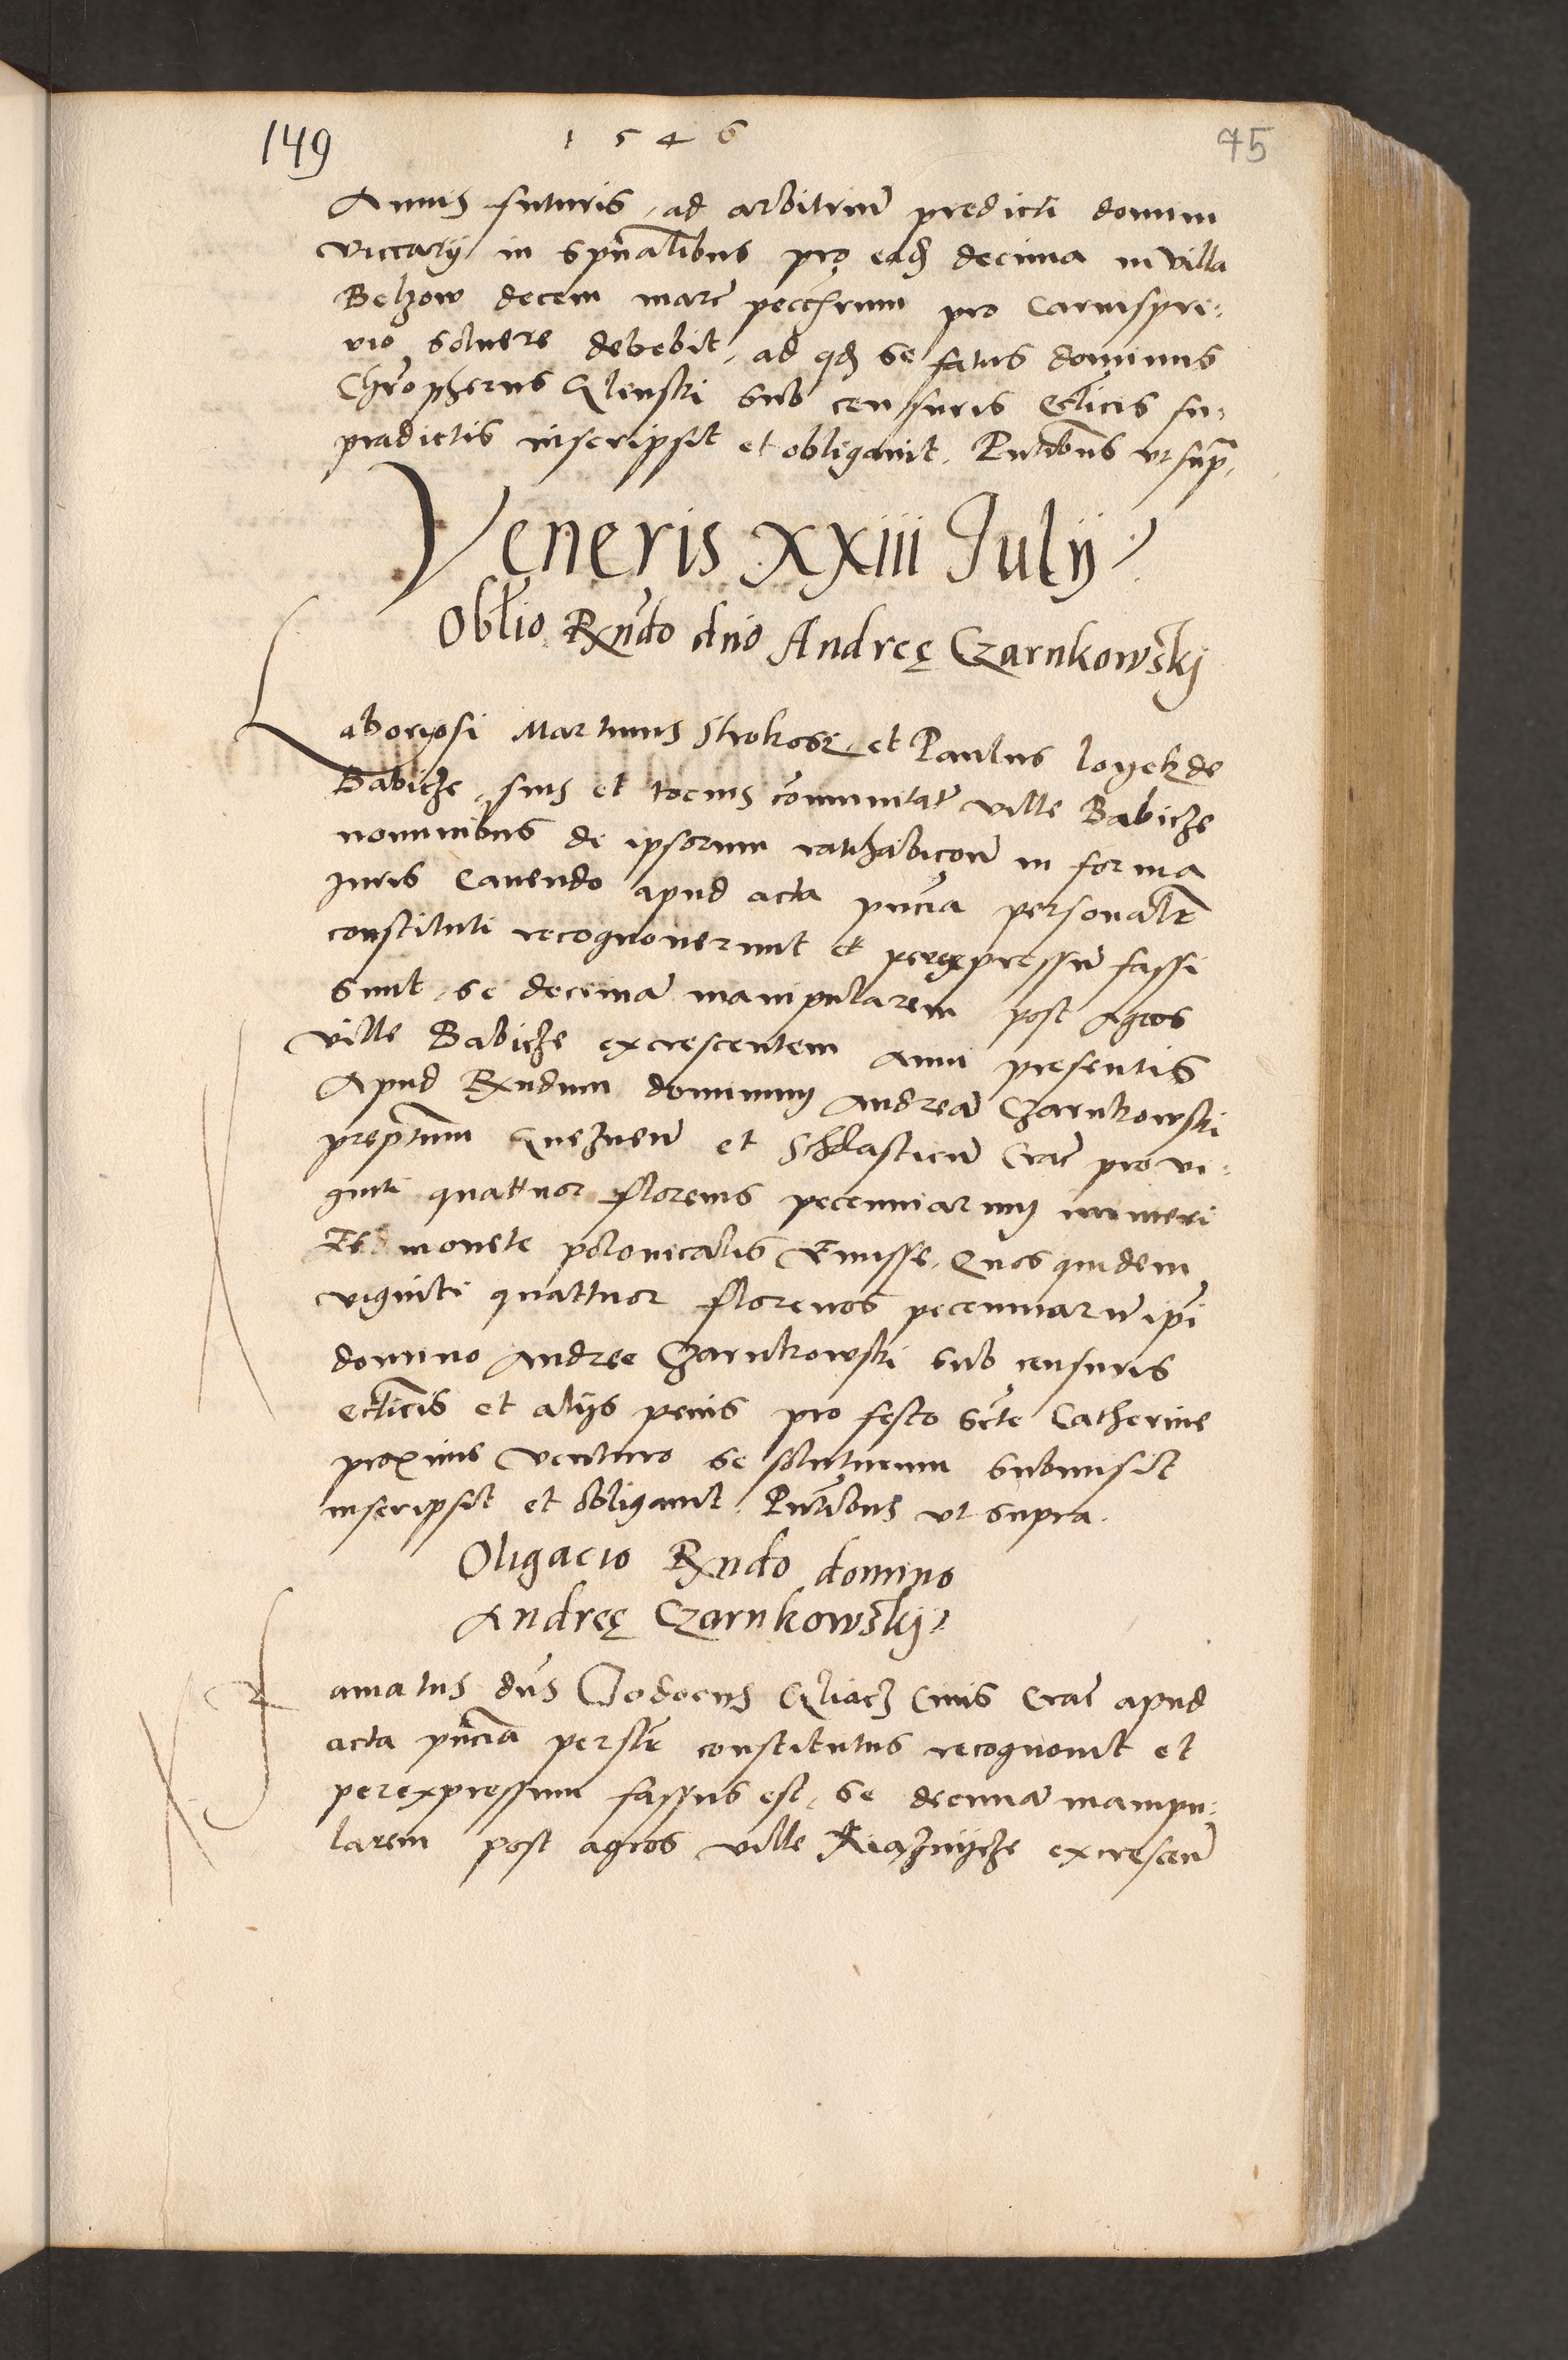 149 1546 75
Annis futuris, ad arbitriũ predicti domini
viccarÿ in spũalibus pro eadẽ decima in villa
Belzow decem marc̃ peccũarum pro Carnispri-
vio soluere debebit, ad qđ se fatus dominus
Chr̃opherus Glenski sub censuris ecclicis su-
pradictis inscripsit et obligauit. Pñtibus vt supᷓ.
Veneris XXIII Julÿ
Obłio Rñdo dño Andreę Czarnkowskj
Laboriosi Martinus Strokosz et Paulus loyek de
Babicze, suis et tocius cõmunitat̃ ville Babicze
nominibus de ipsorum ratihabicoñ in forma
Juris Cauendo apud acta pñcia personalr̃
constituti recognouerunt et perexpressũ fassi
sunt, se decimã manipularem post Agros
ville Babicze excrescentem anni presentis
Apud Rxndum dominum Andreã Czarnkowski
prep̃tum Gneznen̄ et Scholasticũ Crac̃ pro vi-
ginti quattuor florenis peccuniarum numeri
Et monete polonicalis Emisse, Quos quidem
viginti quattuor florenos peccuniarũ ip̃i
domino Andree Czarnkowski sub censuris
ecclicis et alÿs penis pro festo Sc̃te Catherine
proxime venturo se soluturum submisit
inscripsit et obligauit. Pñtibus vt supra.
Oligacio Rxndo domino
Andreę Czarnkowskj
Famatus dñs Jodocus Gliacz Ciuis Crac̃ apud
acta pñcia perslr̃ constitutus recognouit et
perexpressum fassus est, se decimã manipu-
larem post agros ville excrescen̄